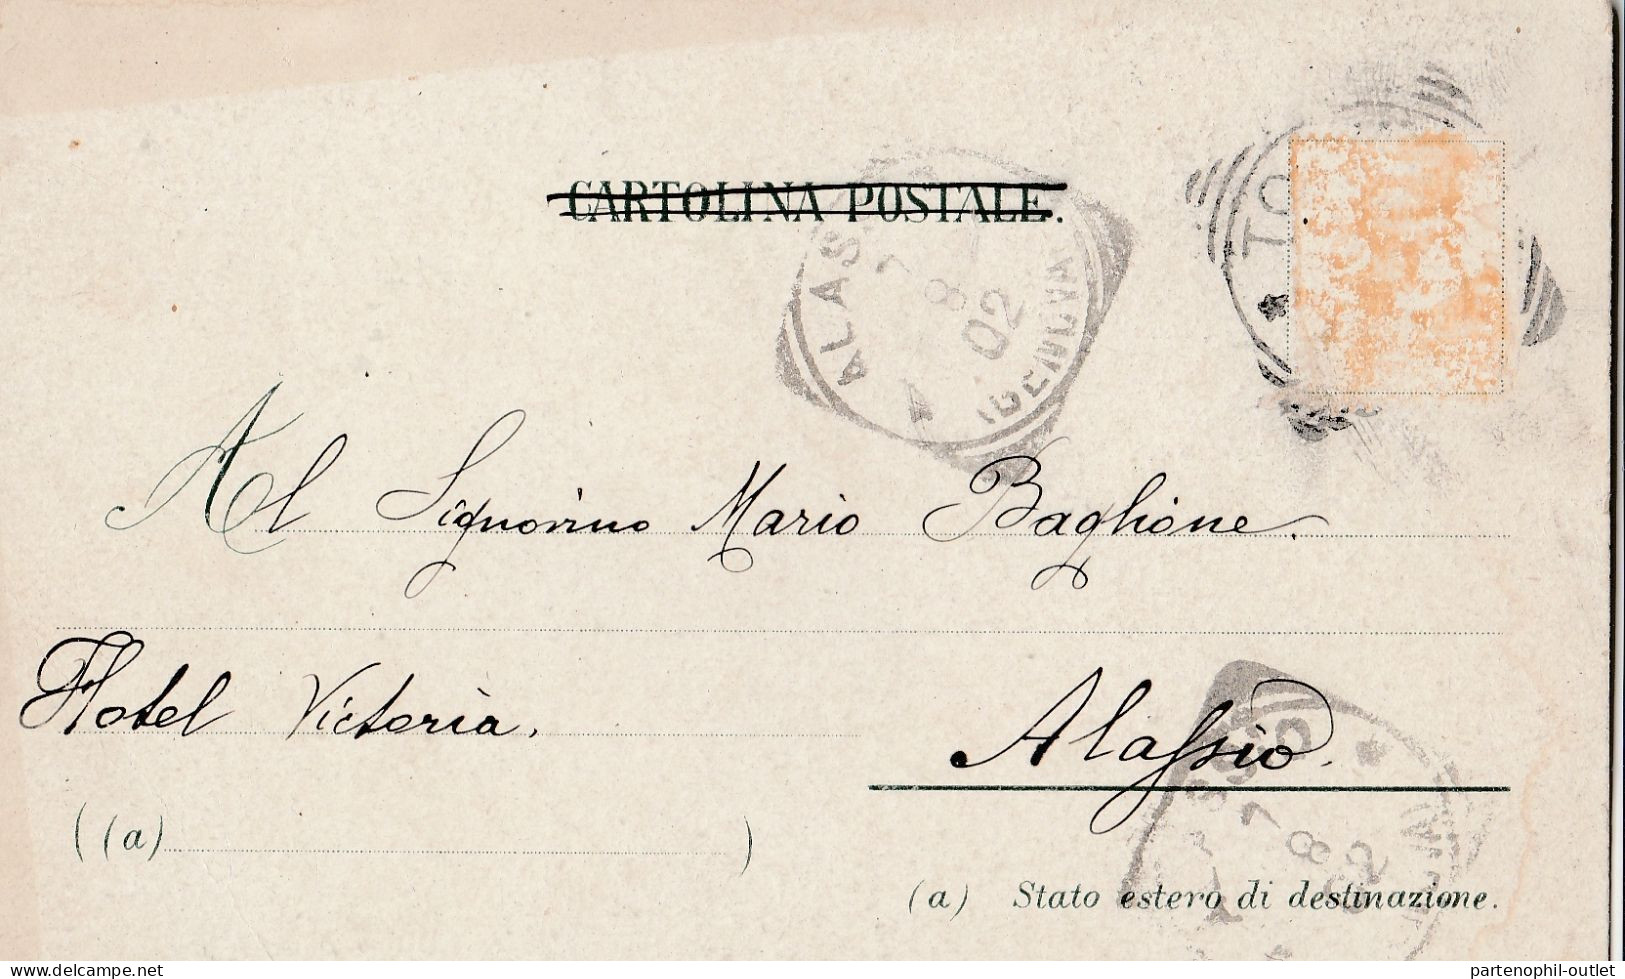 CARTOLINA POSTALE.
ALAS
7 8 02
(GENOVA
TO
Al Signorino Mario Baglione.
Hotel Victoria.
Alassio.
((a) )
7 8 02
(a) Stato estero di destinazione.
www.delcampe.net
partenophil-outlet